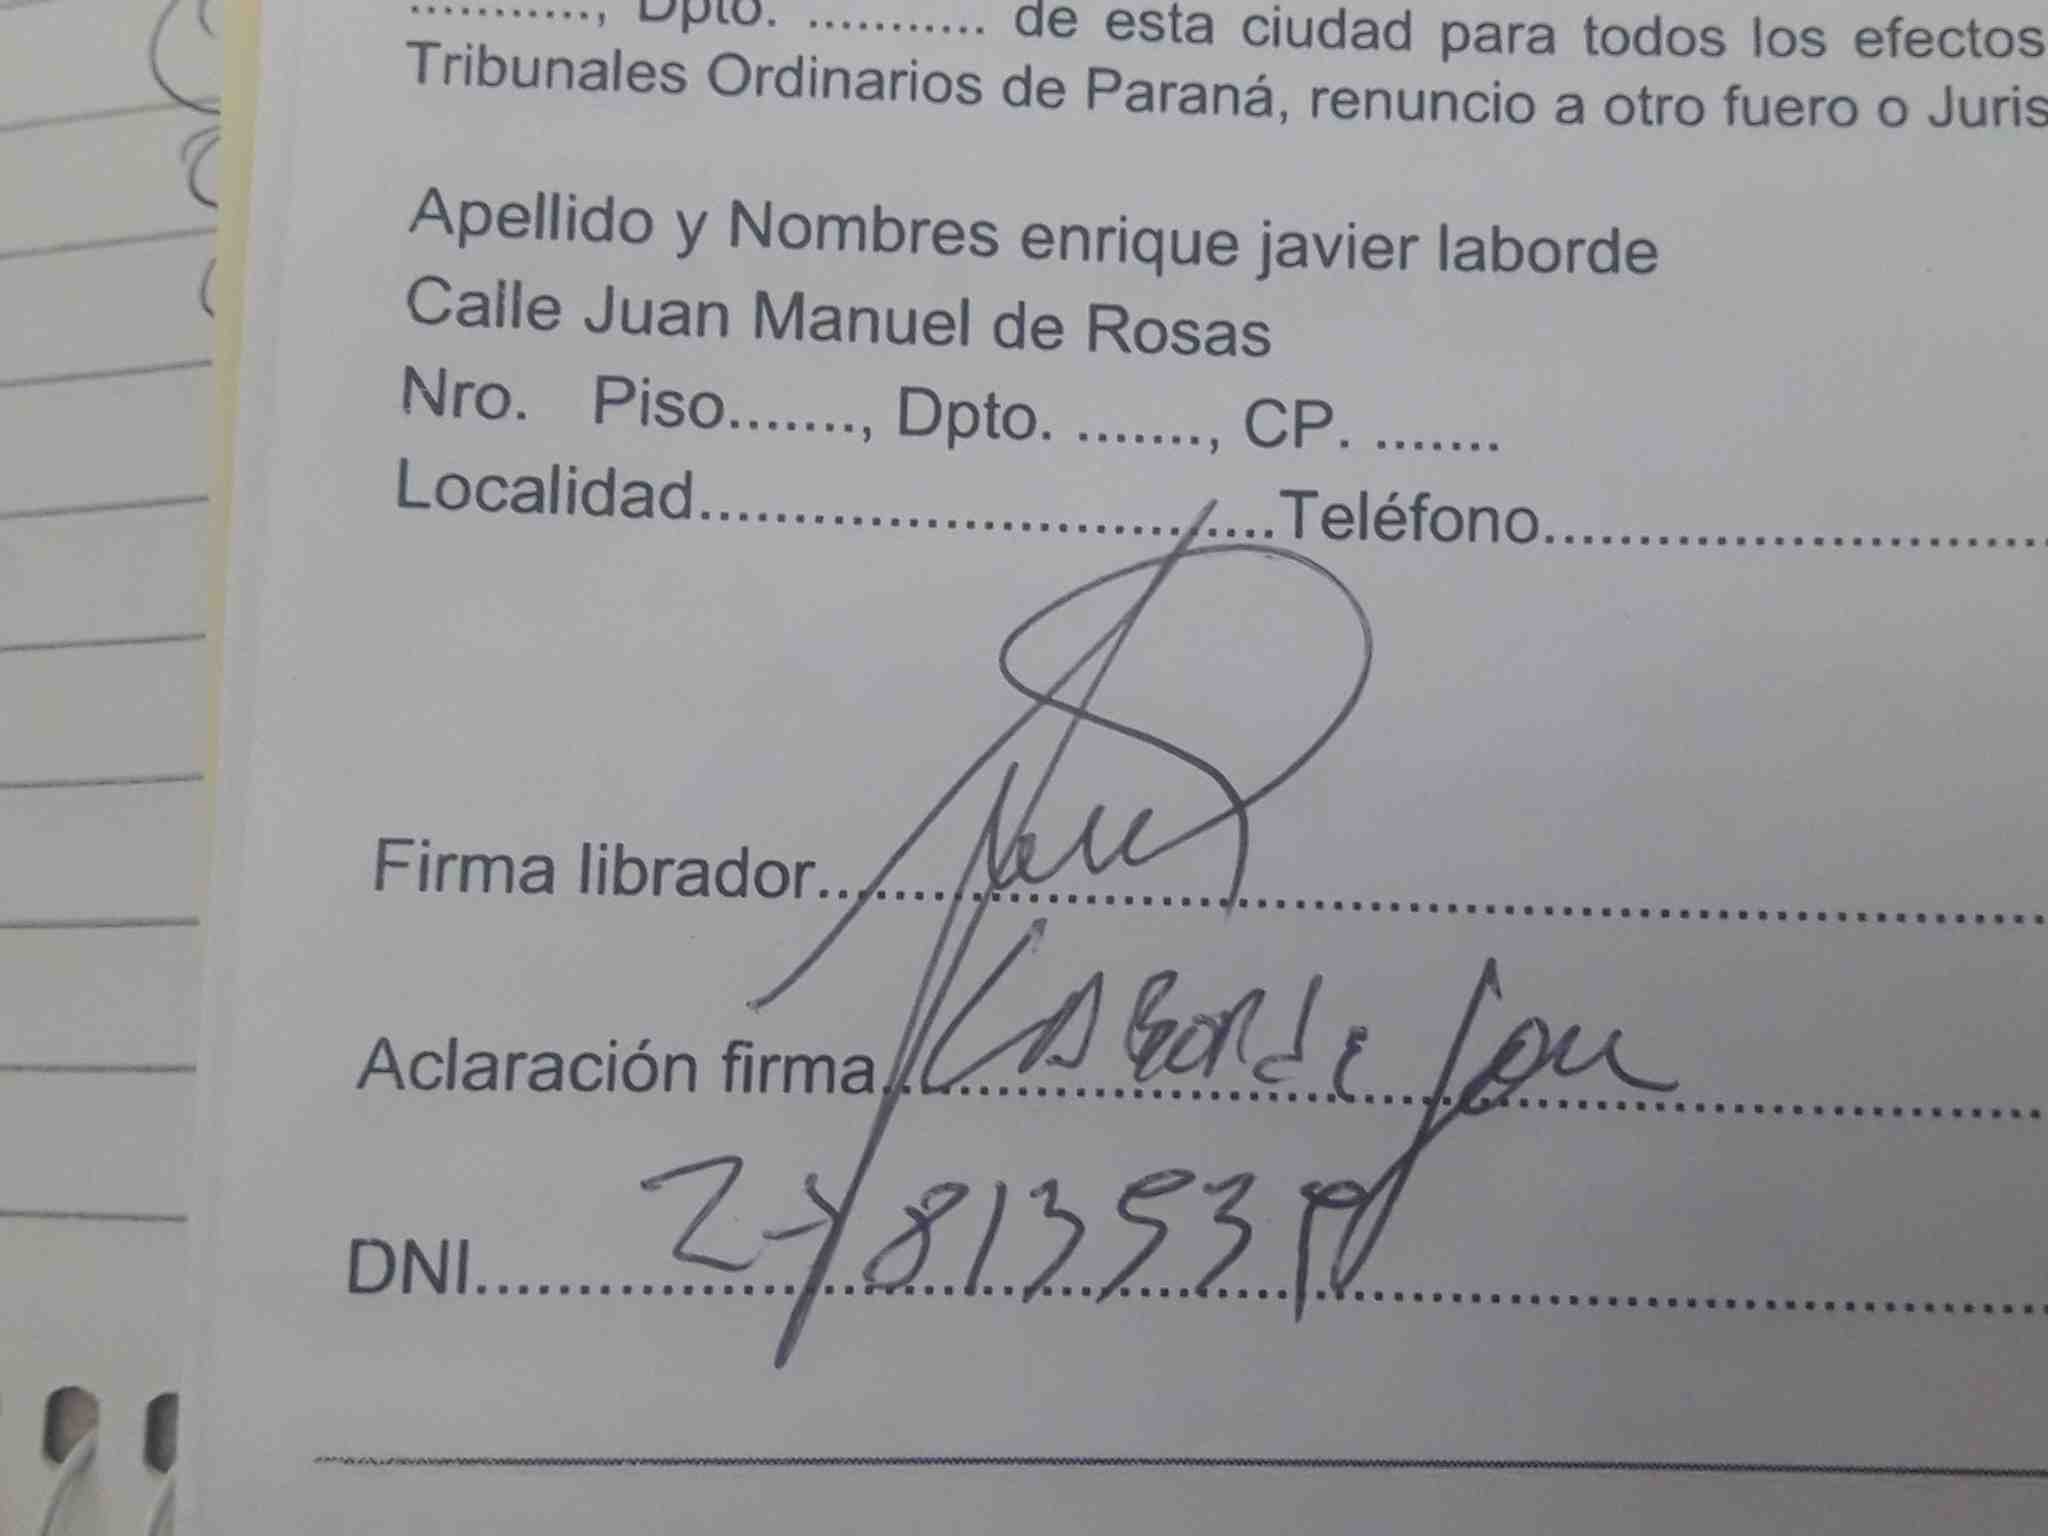 ..........., Dpto. ........... de esta ciudad para todos los efectos
Tribunales Ordinarios de Paraná, renuncio a otro fuero o Juris
Apellido y Nombres enrique javier laborde
Calle Juan Manuel de Rosas
Nro. Piso......., Dpto. ......., CP. .......
Localidad..............................Teléfono..........................
Firma librador..........
Aclaración firma Laborde
DNI